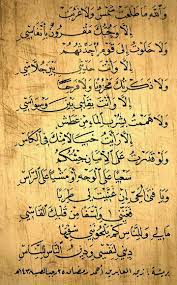 والله ما طلعت شمس ولا غربت
إلا وحبك مقرون بأنفاسي
ولا خلوت إلى قوم أحدثهم
إلا وأنت حديثي بين جلاسي
ولا ذكرتك محزونا ولا فرحا
إلا وأنت بقلبي بين وسواسي
ولا هممت بشرب الماء من عطش
إلا رأيت خيالا منك في الكاس
ولو قدرت على الإتيان جئتكم
سعيا على الوجه أو مشيا على الراس
ويا فتى الحي إن غنيت لي طربا
فغنني وأسفا من قلبك القاسي
مالي وللناس كم يلحونني سفها
ديني لنفسي ودين الناس للناس
أحمد رمضان ٢٥ ١٤٣٨هـ